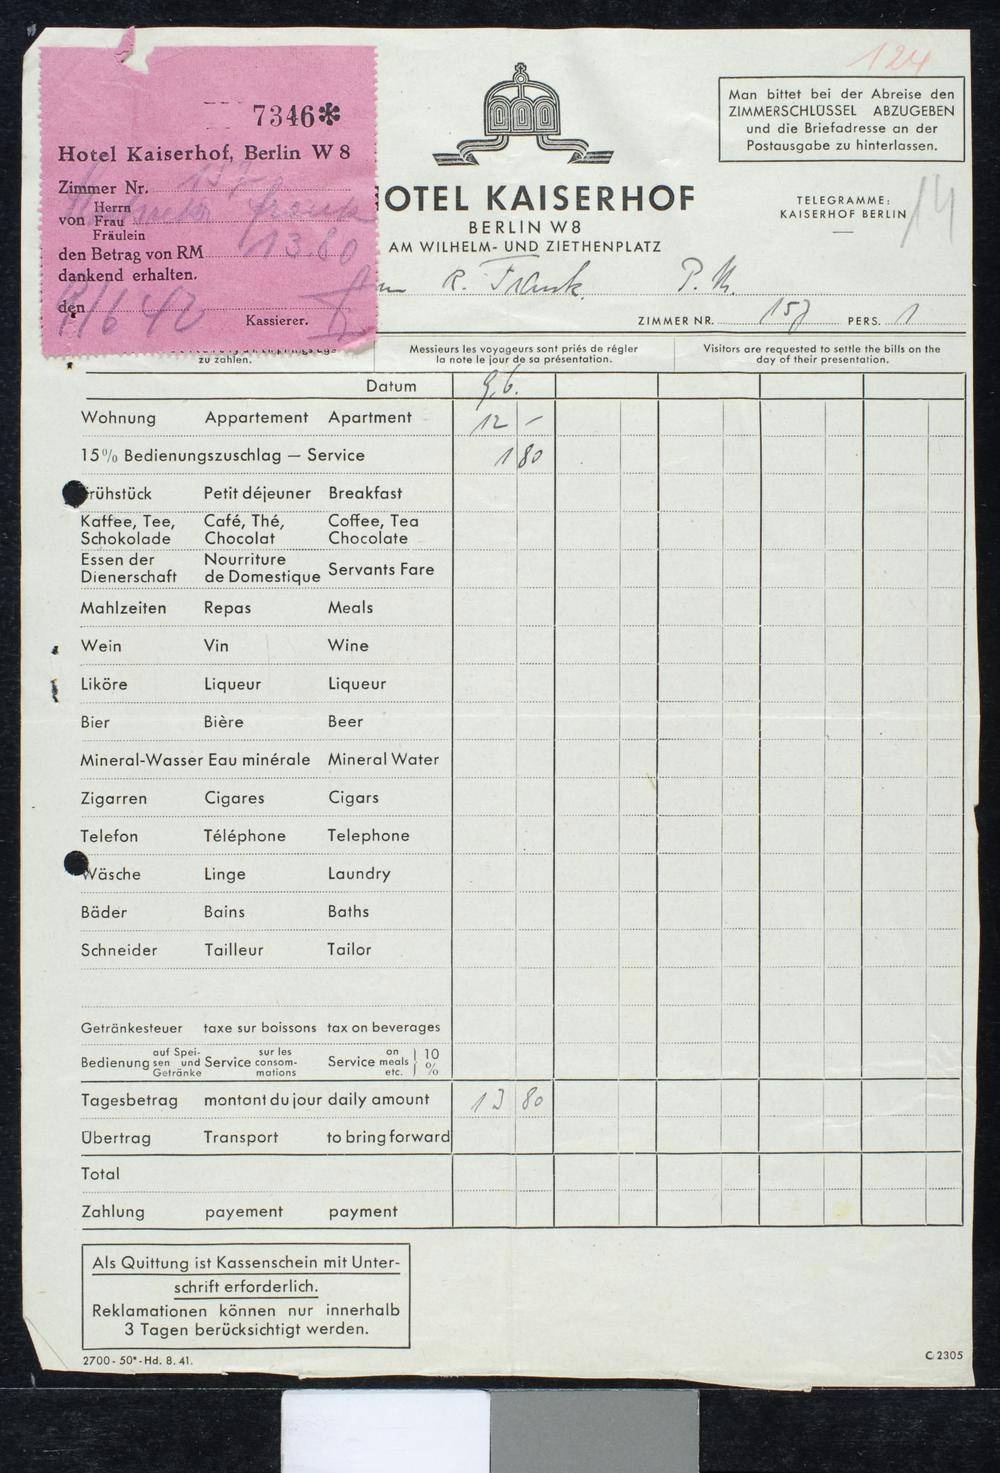 124
7346*
Hotel Kaiserhof, Berlin W 8
Zimmer Nr. 157
von Herrn Frau Fräulein Frank
den Betrag von RM 13.80
dankend erhalten.
den 9/6 42
Kassierer.
Man bittet bei der Abreise den
ZIMMERSCHLÜSSEL ABZUGEBEN
und die Briefadresse an der
Postausgabe zu hinterlassen.
OTEL KAISERHOF
BERLIN W8
AM WILHELM- UND ZIETHENPLATZ
TELEGRAMME:
KAISERHOF BERLIN
14
R. Frank
ZIMMER NR. 157 PERS. 1
zu zahlen.
Messieurs les voyageurs sont priés de régler
la note le jour de sa présentation.
Visitors are requested to settle the bills on the
day of their presentation.
Datum 9.6.
Wohnung Appartement Apartment 12 -
15% Bedienungszuschlag — Service 1 80
rühstück Petit déjeuner Breakfast
Kaffee, Tee, Schokolade Café, Thé, Chocolat Coffee, Tea Chocolate
Essen der Dienerschaft Nourriture de Domestique Servants Fare
Mahlzeiten Repas Meals
Wein Vin Wine
Liköre Liqueur Liqueur
Bier Bière Beer
Mineral-Wasser Eau minérale Mineral Water
Zigarren Cigares Cigars
Telefon Téléphone Telephone
Wäsche Linge Laundry
Bäder Bains Baths
Schneider Tailleur Tailor
Getränkesteuer taxe sur boissons tax on beverages
Bedienung auf Spei- sen und Getränke Service sur les consom- mations Service on meals etc. 10 %
Tagesbetrag montant du jour daily amount 13 80
Übertrag Transport to bring forward
Total
Zahlung payement payment
Als Quittung ist Kassenschein mit Unter-
schrift erforderlich.
Reklamationen können nur innerhalb
3 Tagen berücksichtigt werden.
2700 - 50* - Hd. 8. 41.
C 2305